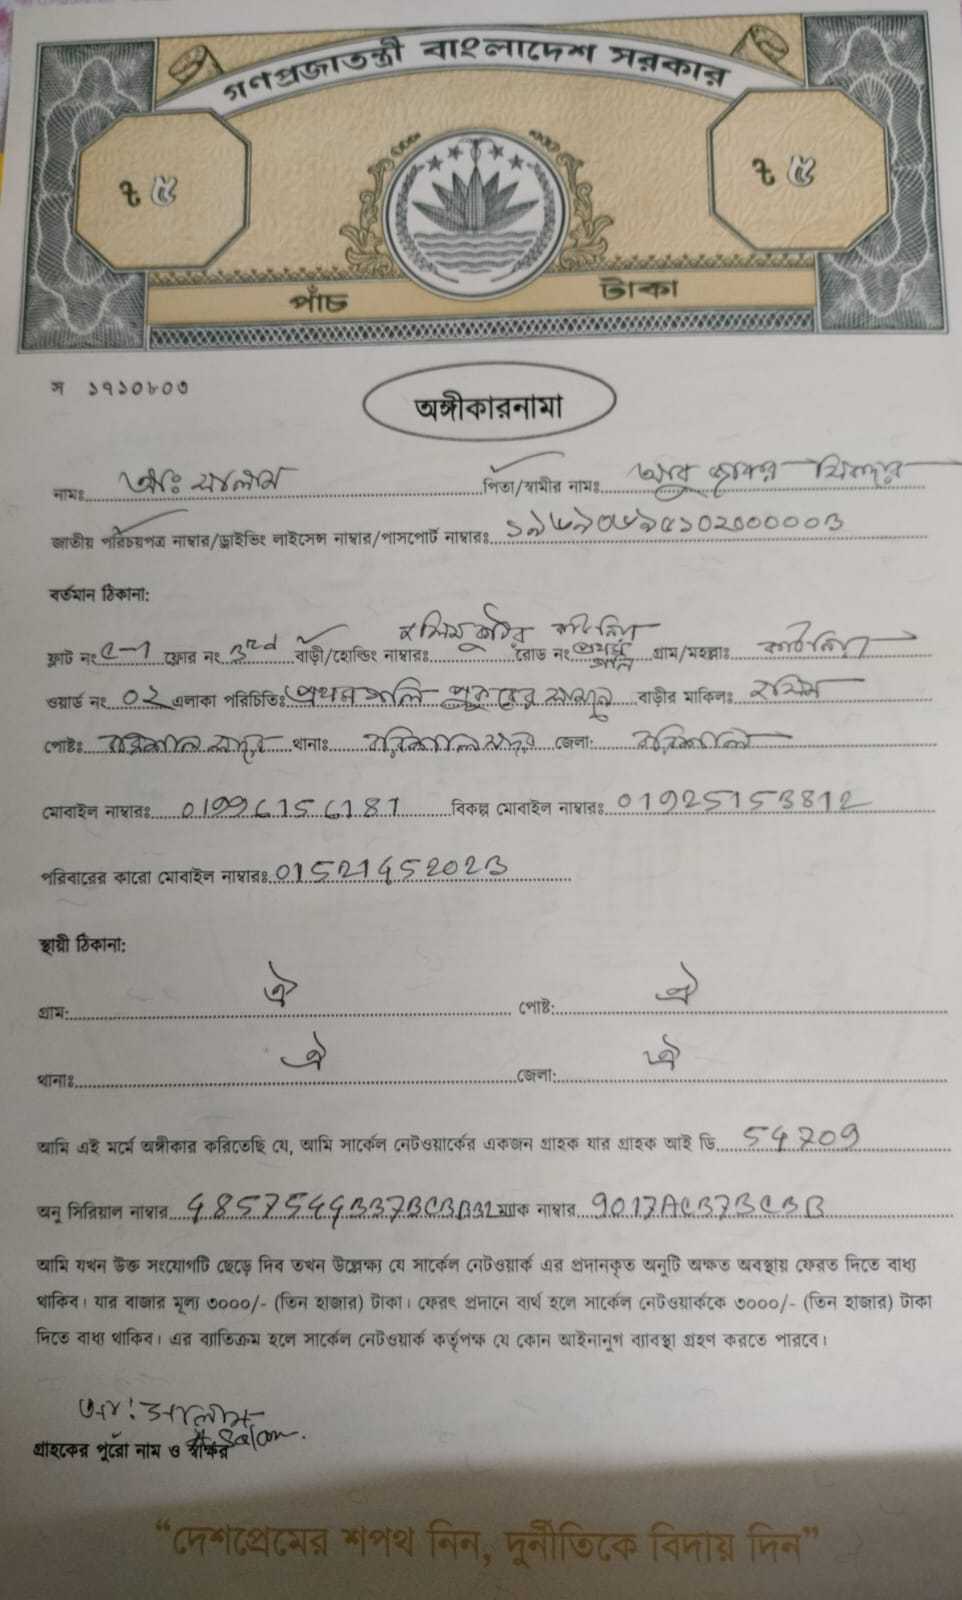 গণপ্রজাতন্ত্রী বাংলাদেশ সরকার
৳ ৫ ৳ ৫
পাঁচ টাকা
স ১৭১০৮০৩
অঙ্গীকারনামা
নামঃ আঃ সালাম পিতা/স্বামীর নামঃ আবু
জাতীয় পরিচয়পত্র নাম্বার/ড্রাইভিং লাইসেন্স নাম্বার/পাসপোর্ট নাম্বারঃ
বর্তমান ঠিকানা:
ফ্লাট নং C-1 ফ্লোর নং 3rd বাড়ী/হোল্ডিং নাম্বারঃ রোড নং প্রথম গলি গ্রাম/মহল্লাঃ
ওয়ার্ড নং ০২ এলাকা পরিচিতিঃ প্রথম গলি পুকুরের সামনে বাড়ীর মাকিলঃ
পোষ্টঃ বরিশাল সদর থানাঃ বরিশাল সদর জেলা: বরিশাল
মোবাইল নাম্বারঃ 01996156181 বিকল্প মোবাইল নাম্বারঃ 01925153812
পরিবারের কারো মোবাইল নাম্বারঃ 01521452023
স্থায়ী ঠিকানা:
গ্রাম: ঐ পোষ্ট: ঐ
থানাঃ ঐ জেলা: ঐ
আমি এই মর্মে অঙ্গীকার করিতেছি যে, আমি সার্কেল নেটওয়ার্কের একজন গ্রাহক যার গ্রাহক আই ডি 54709
অনু সিরিয়াল নাম্বার ম্যাক নাম্বার 9017ACB7BCBB
আমি যখন উক্ত সংযোগটি ছেড়ে দিব তখন উল্লেক্ষ্য যে সার্কেল নেটওয়ার্ক এর প্রদানকৃত অনুটি অক্ষত অবস্থায় ফেরত দিতে বাধ্য
থাকিব। যার বাজার মূল্য ৩০০০/- (তিন হাজার) টাকা। ফেরৎ প্রদানে ব্যর্থ হলে সার্কেল নেটওয়ার্ককে ৩০০০/- (তিন হাজার) টাকা
দিতে বাধ্য থাকিব। এর ব্যাতিক্রম হলে সার্কেল নেটওয়ার্ক কর্তৃপক্ষ যে কোন আইনানুগ ব্যাবস্থা গ্রহণ করতে পারবে।
আঃ সালাম
A Salam.
গ্রাহকের পুরো নাম ও স্বাক্ষর
“দেশপ্রেমের শপথ নিন, দুর্নীতিকে বিদায় দিন”